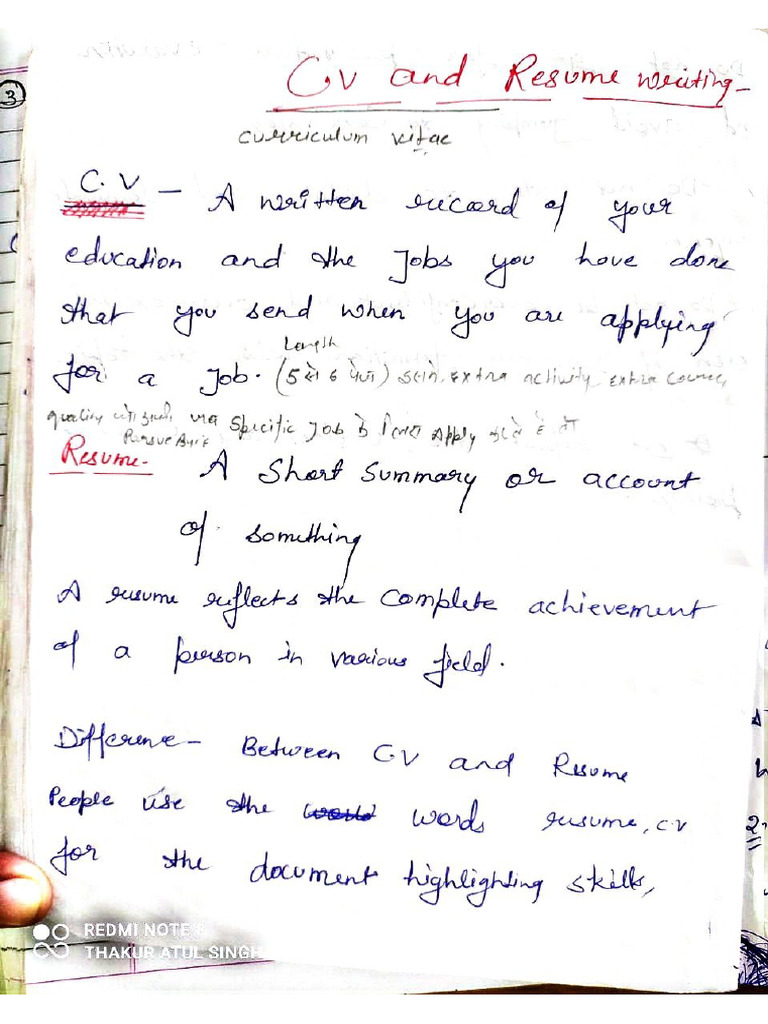 3
C.V and Resume writing-
curriculum vitae
C.V - A written record of your
education and the Jobs you have done
that you send when you are applying
Length
for a Job. (5 से 6 पेज) इसमे extra activity extra course,
quality Specific Job के लिए Apply करते है
Resume- A Short Summary or account
of something
A resume reflects the complete achievement
of a person in various field.
Difference- Between C.V and Resume
People use the words resume, cv
for the document highlighting skills,
2.
REDMI NOTE 8
THAKUR ATUL SINGH